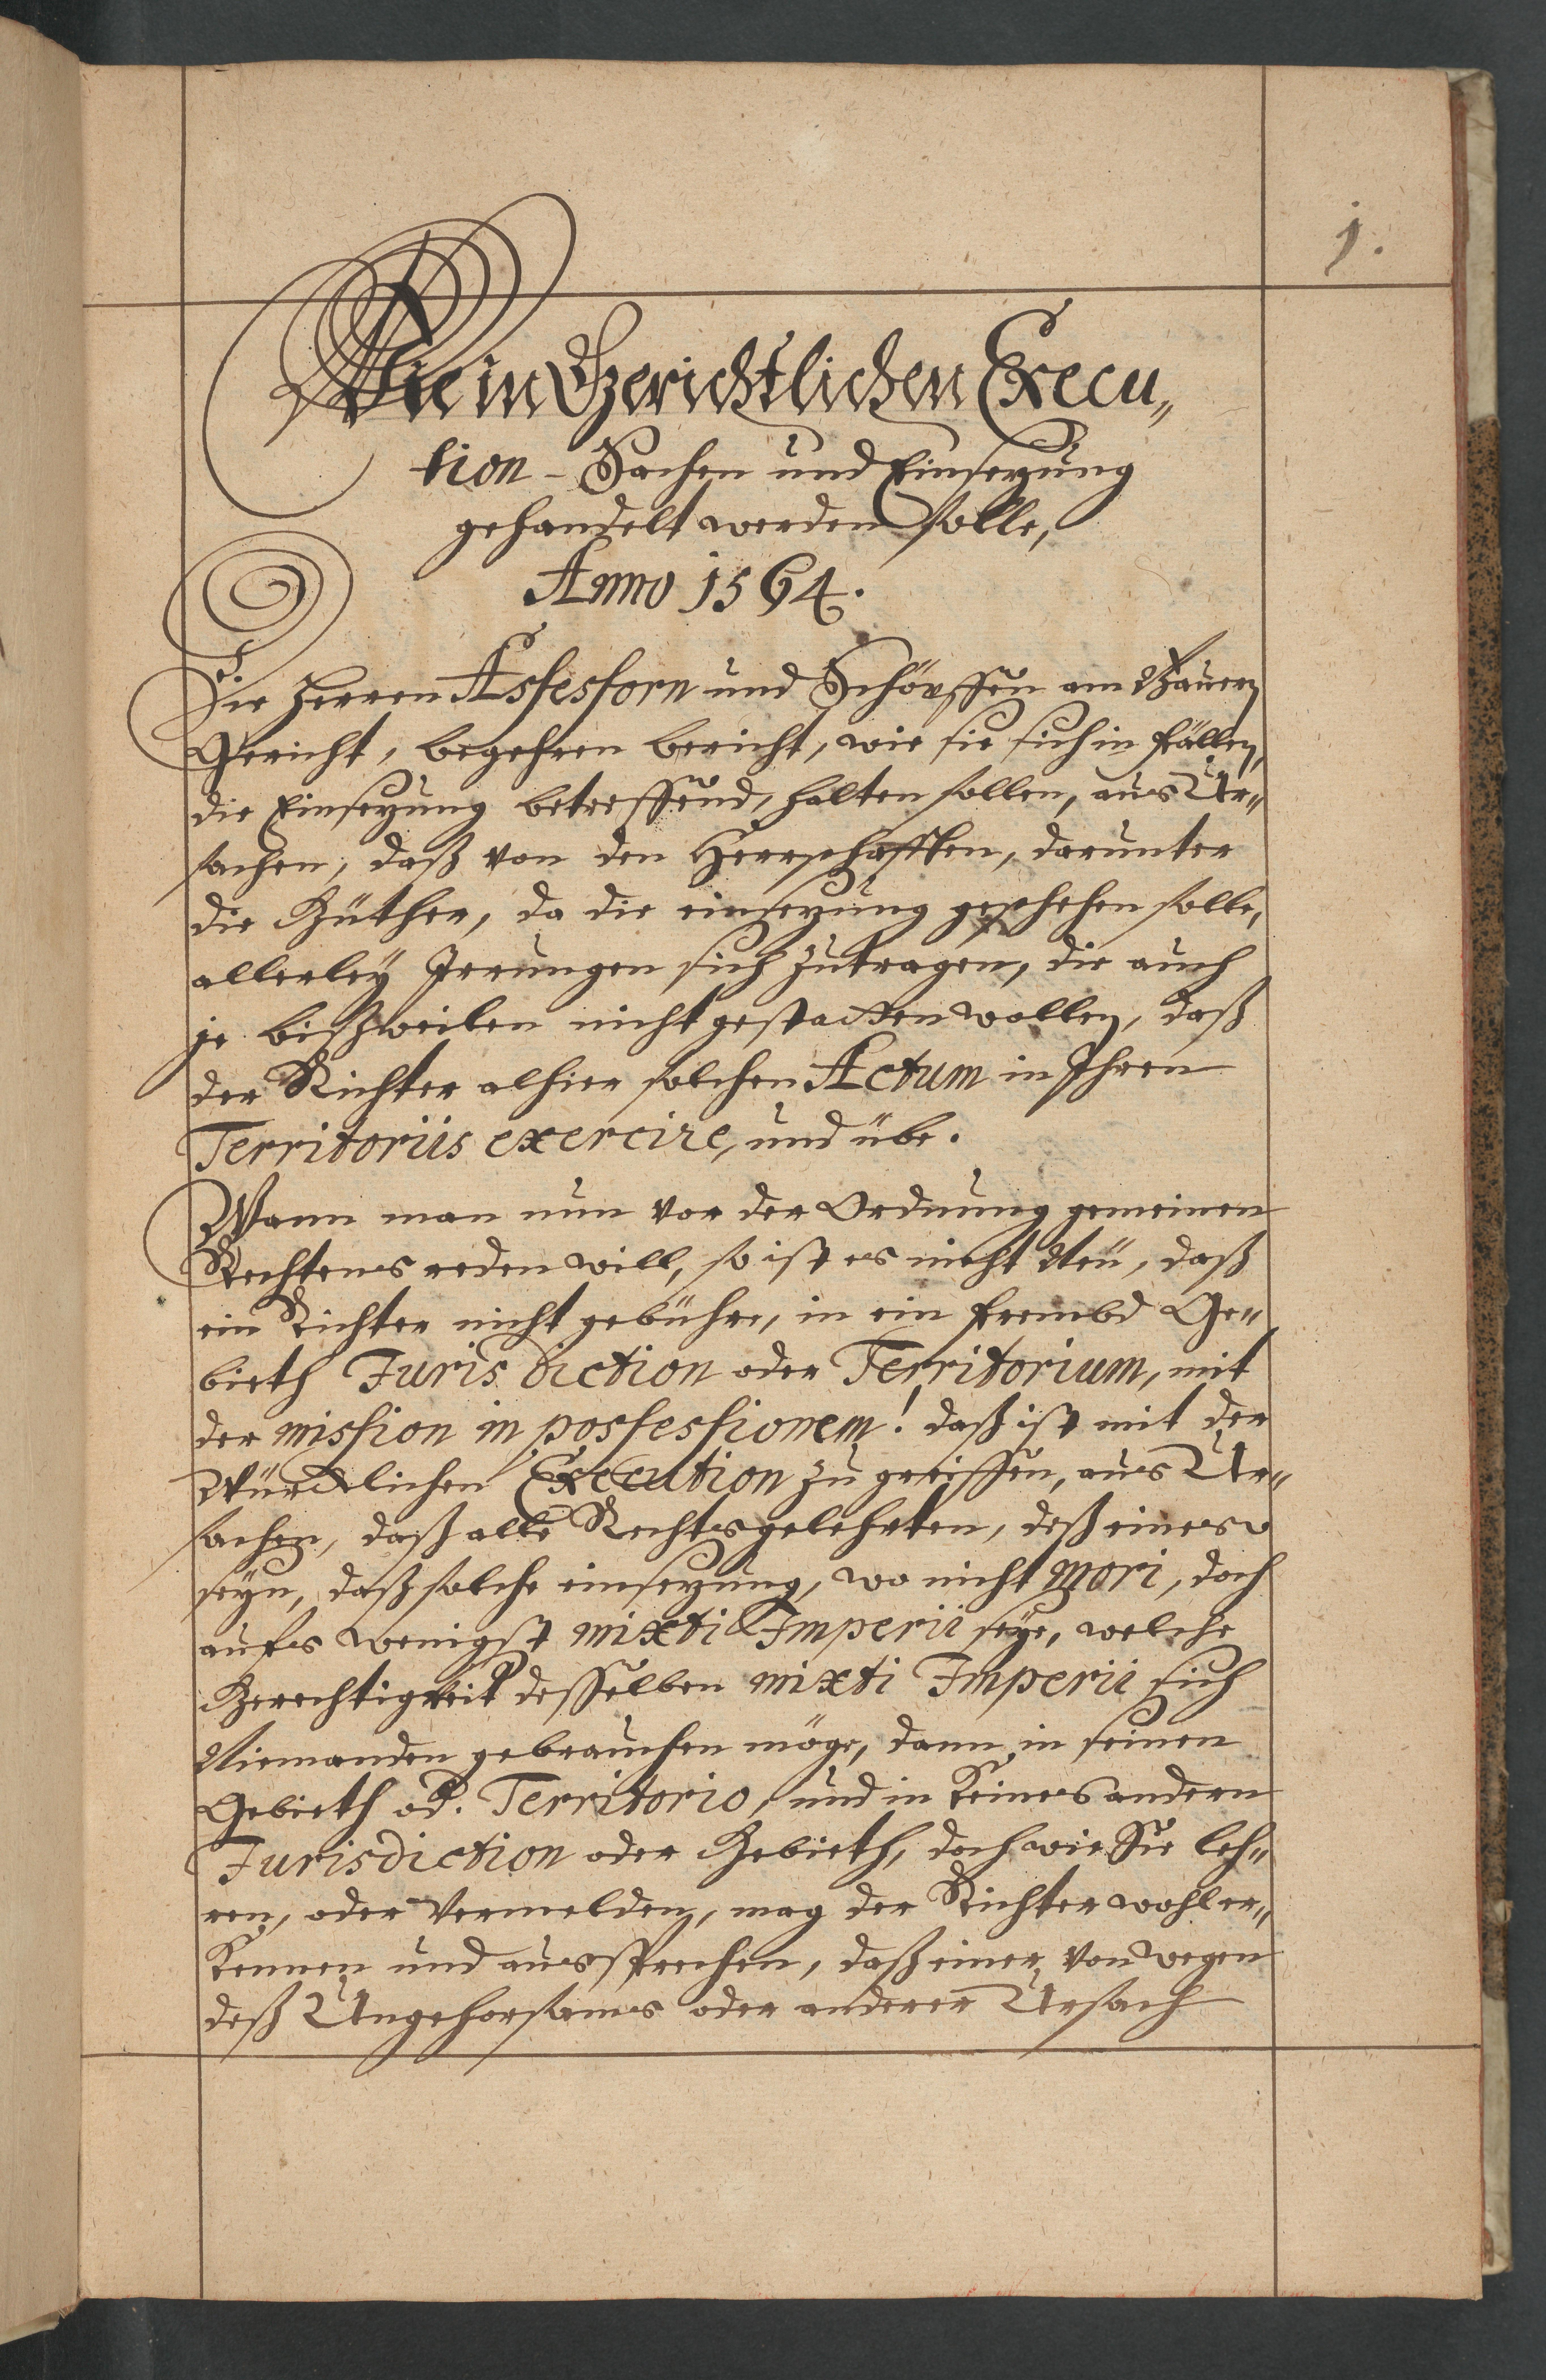 1.
Wie in Gerichtlichen Execu„
tion-Sachen und Einsezung
gehandelt werden solle,
Anno 1564.
Die Herren Assessorn und Schöpffen am Bauern
Gericht, begehren bericht, wie sie sich in fällen,
die Einsezung betreffend, halten sollen, aus Ur„
sachen, daß von den Herrschafften, darunter
die Güther, da die einsezung geschehen solle,
allerley Irrungen sich zutragen, die auch
je bißweilen nicht gestatten wollen, daß
der Richter alhier solchen Actum in Ihren
Territoriis exercire, und übe.
Wann man nun vor der Ordnung gemeinen
Rechtens reden will, so ist es nicht Neu, daß
ein Richter nicht gebühre, in ein frembd Ge„
bieth Jurisdiction oder Territorium, mit
der mission in possessionem! daß ist mit der
Würcklichen Execution zu greiffen, aus Ur„
sachen, daß alle Rechtsgelehrten, deß eines
seyn, daß solche einsezung, wo nicht meri, doch
aufs wenigst mixti Imperii seye, welche
Gerechtigkeit desselben mixti Imperii sich
Niemanden gebrauchen möge, dann in seinen
Gebieth od. Territorio, und in keines andern
Jurisdiction oder Gebieth, doch wie Sie leh„
ren, oder Vermelden, mag der Richter wohl er„
kennen und aussprechen, daß einer von wegen
deß Ungehorsams oder anderer Ursach